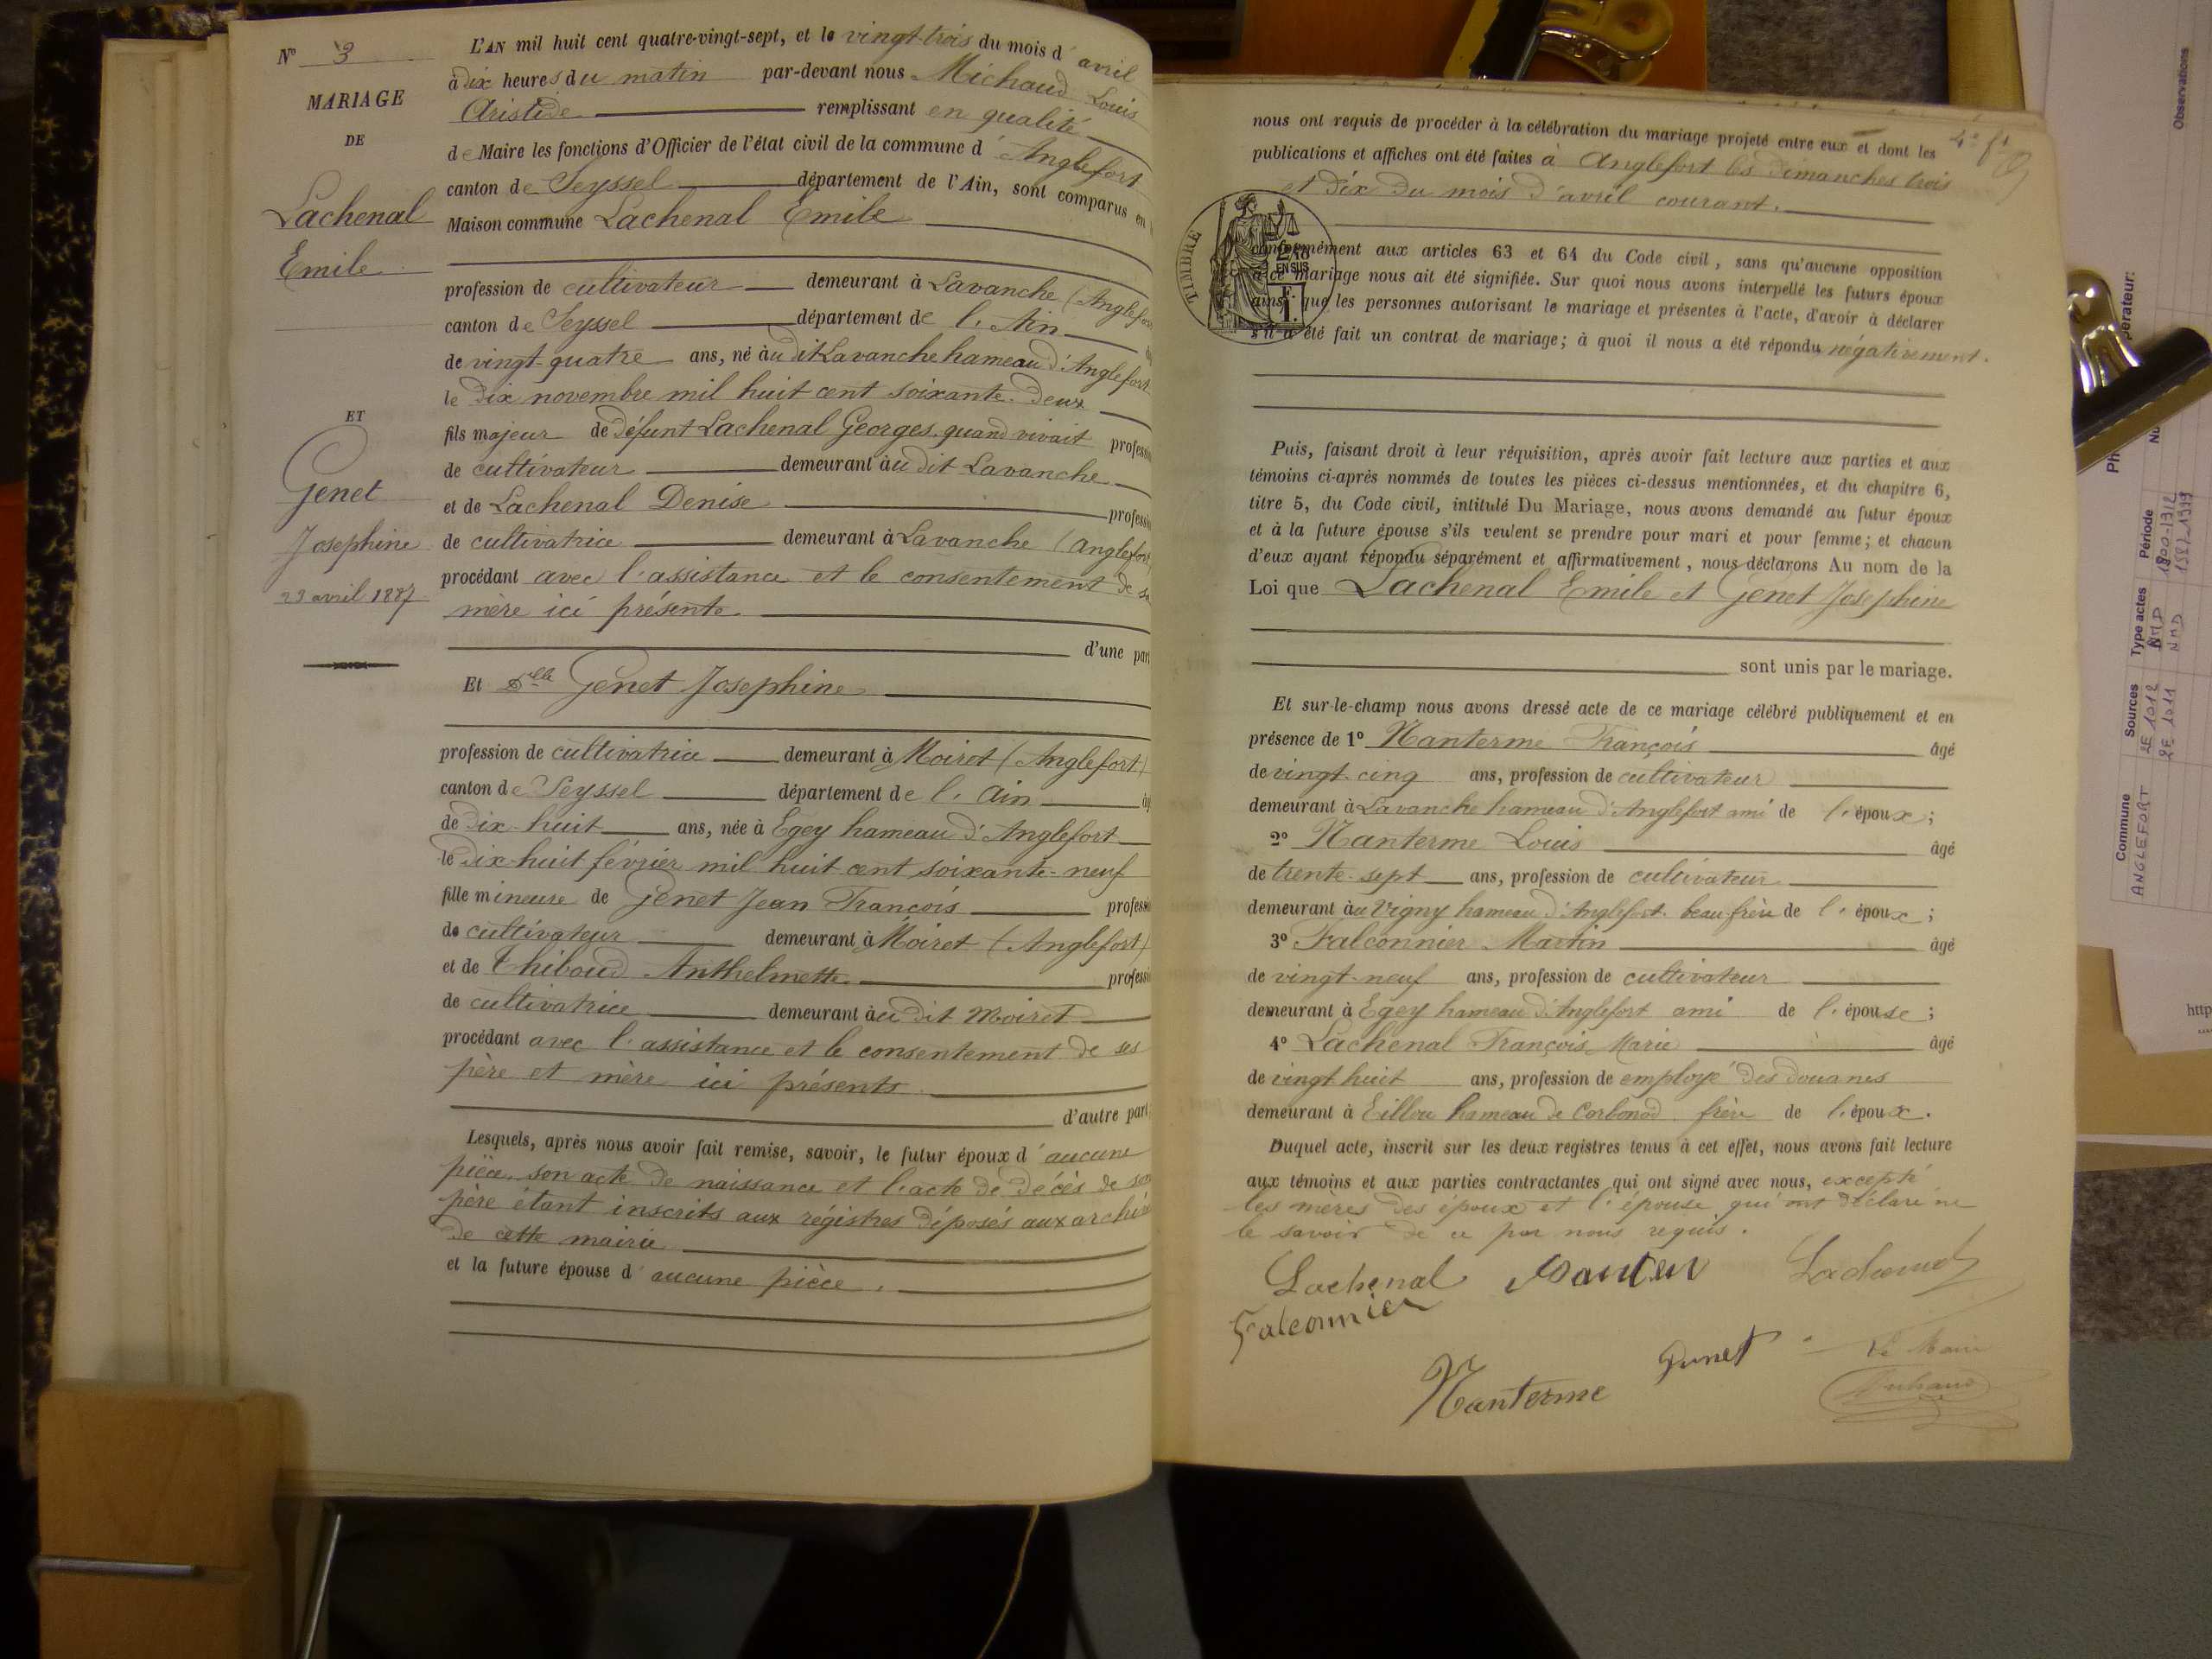 N° 3
MARIAGE
DE
Lachenal
Emile
ET
Genet
Josephine
23 avril 1887
L'AN mil huit cent quatre-vingt-sept, et le vingt-trois du mois d'avril
à dix heures du matin par-devant nous Michaud Louis
Aristide remplissant en qualité
de Maire les fonctions d'Officier de l'état civil de la commune d'Anglefort
canton de Seyssel département de l'Ain, sont comparus en
Maison commune Lachenal Emile
profession de cultivateur demeurant à Lavanche (Anglefort
canton de Seyssel département de l'Ain
de vingt-quatre ans, né àu dit Lavanche hameau d'Anglefort
le dix novembre mil huit cent soixante-deux
fils majeur de défunt Lachenal Georges, quand vivait profession
de cultivateur demeurant àu dit Lavanche
et de Lachenal Denise profession
de cultivatrice demeurant à Lavanche (Anglefort
procédant avec l'assistance et le consentement de sa
mère ici présente.
d'une part
Et Dlle Genet Josephine
profession de cultivatrice demeurant à Moiret (Anglefort)
canton de Seyssel département de l'Ain âg
de dix-huit ans, née à Egey hameau d'Anglefort
le dix-huit février mil huit cent soixante-neuf
fille mineure de Genet Jean François profession
de cultivateur demeurant à Moiret (Anglefort)
et de Thiboud Anthelmette profession
de cultivatrice demeurant àu dit Moiret
procédant avec l'assistance et le consentement de ses
père et mère ici présents
d'autre part
Lesquels, après nous avoir fait remise, savoir, le futur époux d'aucune
pièce, son acte de naissance et l'acte de décès de son
père étant inscrits aux régistres déposés aux archives
de cette mairie
et la future épouse d'aucune pièce.
nous ont requis de procéder à la célébration du mariage projeté entre eux et dont les
publications et affiches ont été faites à Anglefort les dimanches trois
et dix du mois d'avril courant.
TIMBRE
EN SUS
conformément aux articles 63 et 64 du Code civil, sans qu'aucune opposition
à ce mariage nous ait été signifiée. Sur quoi nous avons interpellé les futurs époux
ainsi que les personnes autorisant le mariage et présentes à l'acte, d'avoir à déclarer
s'il a été fait un contrat de mariage; à quoi il nous a été répondu négativement.
Puis, faisant droit à leur réquisition, après avoir fait lecture aux parties et aux
témoins ci-après nommés de toutes les pièces ci-dessus mentionnées, et du chapitre 6,
titre 5, du Code civil, intitulé Du Mariage, nous avons demandé au futur époux
et à la future épouse s'ils veulent se prendre pour mari et pour femme; et chacun
d'eux ayant répondu séparément et affirmativement, nous déclarons Au nom de la
Loi que Lachenal Emile et Genet Josephine
sont unis par le mariage.
Et sur-le-champ nous avons dressé acte de ce mariage célébré publiquement et en
présence de 1° Nanterme François âgé
de vingt-cinq ans, profession de cultivateur
demeurant à Lavanche hameau d'Anglefort ami de l'époux;
2° Nanterme Louis âgé
de trente-sept ans, profession de cultivateur
demeurant àu Vigny hameau d'Anglefort beau frère de l'époux;
3° Falconnier Martin âgé
de vingt-neuf ans, profession de cultivateur
demeurant à Egey hameau d'Anglefort ami de l'épouse;
4° Lachenal François Marie âgé
de vingt huit ans, profession de employé des douanes
demeurant à Eillou hameau de Corbonod frère de l'époux.
Duquel acte, inscrit sur les deux registres tenus à cet effet, nous avons fait lecture
aux témoins et aux parties contractantes qui ont signé avec nous, excepté
les mères des époux et l'épouse qui ont déclaré ne
le savoir de ce par nous requis.
Lachenal
Lachenal
Falconnier
Nanterme
Genet
Le Maire
Michaud
Observations
Commune Sources Type actes Période
ANGLEFORT 2E 1012 NMD
2E 1011 NMD
http